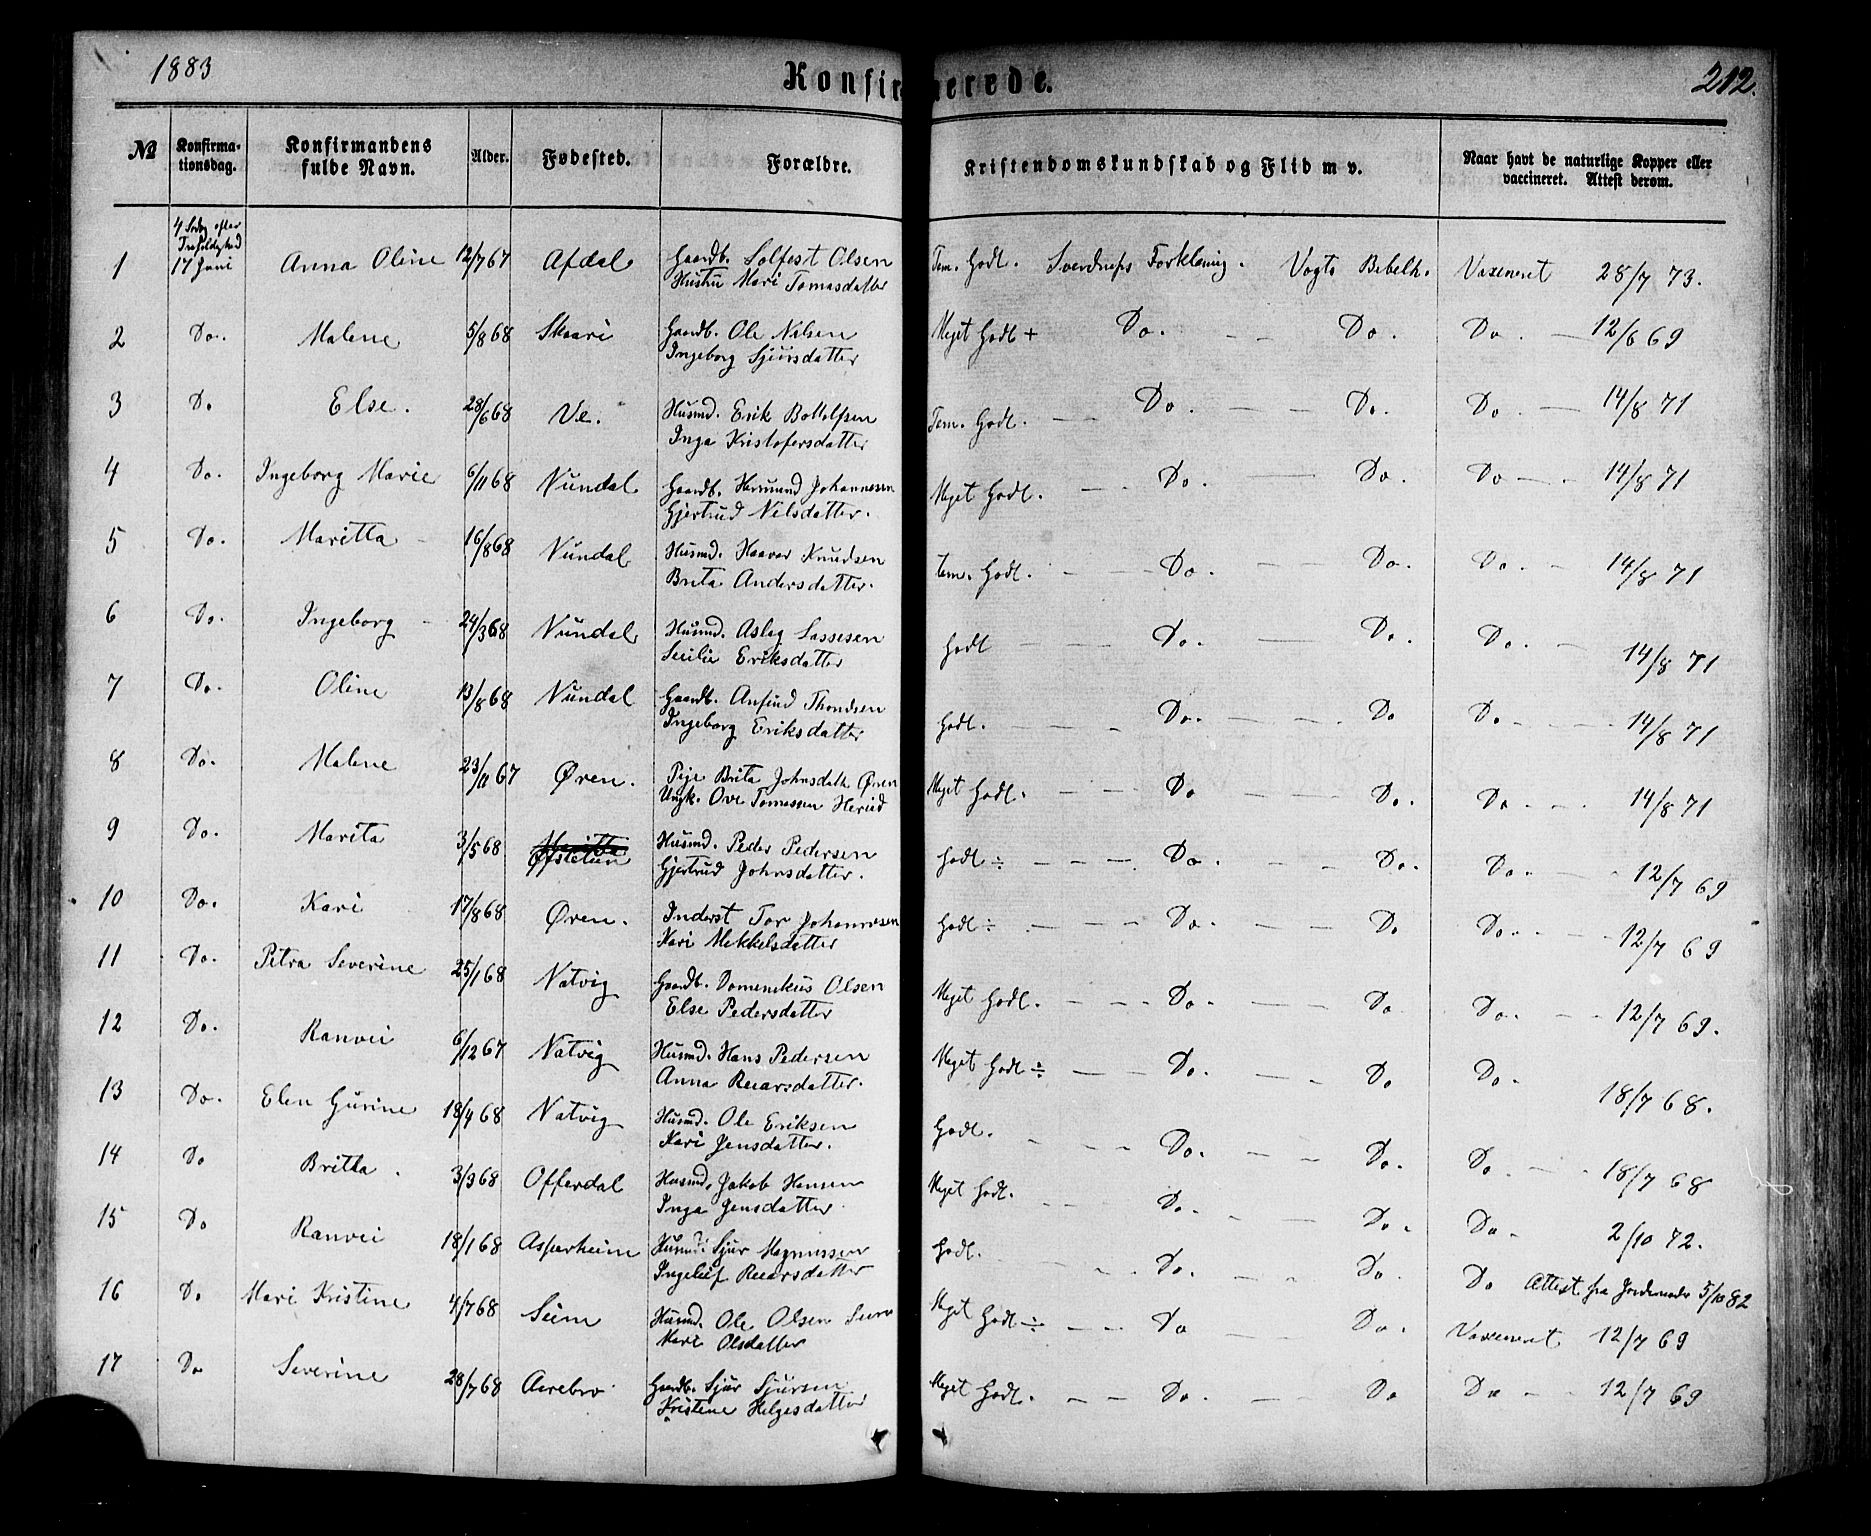 1883
Konfirmerede.
212.
№ Konfirmationsdag. Konfirmandens fulde Navn. Alder. Fødested. Forældre. Kristendomskundskab og Flid m v. Naar havt de naturlige Kopper eller vaccineret. Attest derom.
4 Søndg efter
Trefoldighed
1 17 Juni Anna Oline 12/7 67 Afdal Gaardb. Solfest Olsen Tem. Godt. Sverdrups Forklaring. Vogts Bibelh. Vaxeneret 28/7 73.
Hustru Mari Tomasdatter
2 Do. Malene 5/8 68 Skaari Gaardb. Ole Nilsen Meget Godt + Do. - - Do. Do - 12/6 69
Ingeborg Sjursdatter
3 Do Else. 28/6 68 Ve. Husmd. Erik Bottolfsen Tem. Godt. - Do. - - Do. Do. - 14/8 71
Inga Kristofersdatter
4 Do. Ingeborg Marie 6/11 68 Nundal Gaardb. Hermund Johannesen Meget Godt. - - Do. - Do. Do - . 14/8 71
Gjertrud Nilsdatter.
5 Do. Maritta 16/8 68 Nundal Husmd. Haavar Knudsen Tem. Godt. - - Do. - Do. Do. - 14/8 71
Brita Andersdatter.
6 Do. Ingeborg 24/3 68 Nundal Husmd. Aslag Lassesen Godt - - - Do. - Do. Do. - 14/8 71
Secilie Eriksdatter
7 Do. Oline 13/8 68 Nundal Gaardb. Anfind Thondsen Godt. - - - Do. - - . Do Do. - - 14/8 71
Ingeborg Eriksdatter
8 Do. Malene 23/11 67 Øren. Pige Brita Johnsdatt Øren Meget Godt. - - - Do - Do. Do. - . 14/8 71
Ungk. Ove Tomassen Herud
9 Do. Marita 3/5 68 Øfstetun Husmd. Peder Pedersen Godt ÷ - - - Do. - - Do. Do. - - 12/7 69
Gjertrud Johnsdatter.
10 Do. Kari 17/8 68 Øren. Inderst Tor Johannesen Godt ÷ - - - Do. - - Do Do. - - 12/7 69
Kari Mekkelsdatter
11 Do. Petra Severine 25/1 68 Natvig Gaardb. Domenikus Olsen Meget Godt. - - - Do. - Do Do. - - 12/7 69.
Else Pedersdatter
12 Do. Ranvei 6/12 67 Natvig Husmd. Hans Pedersen Meget Godt ÷ - - Do. - - Do Do. 18/7 68.
Anna Reiarsdatter.
13 Do. Elen Gurine 18/4 68 Natvig Husmd. Ole Eriksen Godt. - - - Do. - - Do. Do. - - 18/7 68
Kari Jensdatter.
14 Do Britta. 3/3 68 Offerdal Husmd. Jakob Hansen Meget Godt. - - Do. - - Do. Do - 2/10 72.
Inga Jensdatter.
15 Do Ranvei 18/1 68 Asperheim Husmd. Sjur Magnussen Godt. - - - Do. - - Do. Do Attest fra 5/10 82
Ingelief Reiarsdatter
16 Do Mari Kristine 4/7 68 Seim Husmd. Ole Olsen Seim Meget Godt ÷ - - Do - - Do. Vaxeneret 12/7 69
Mari Olsdatter
17 Do Severine 28/7 68 Aerebro Gaardb. Sjur Sjursen Meget Godt. - - Do. - - Do Do - - 12/7 69
Kristene Helgesdatter